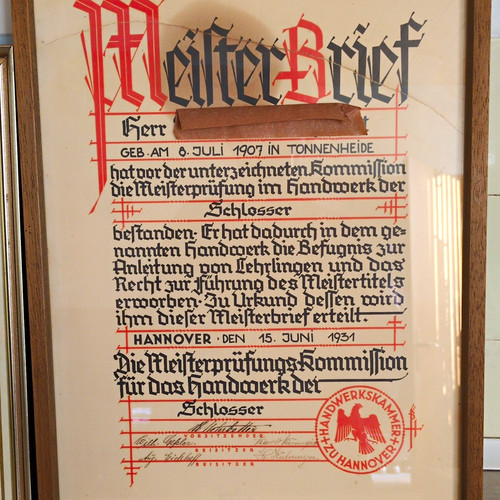 Meister Brief
Herr
GEB. AM 8. JULI 1907 IN TONNENHEIDE
hat vor der unterzeichneten Kommission
die Meisterprüfung im Handwerk der
Schlosser
bestanden · Er hat dadurch in dem ge-
nannten Handwerk die Befugnis zur
Anleitung von Lehrlingen und das
Recht zur Führung des Meistertitels
erworben · Zu Urkund dessen wird
ihm dieser Meisterbrief erteilt.
HANNOVER · DEN 15. JUNI 1931
Die Meisterprüfungs-Kommission
für das Handwerk der
Schlosser
VORSITZENDER
BEISITZER
BEISITZER
HANDWERKSKAMMER
ZU HANNOVER